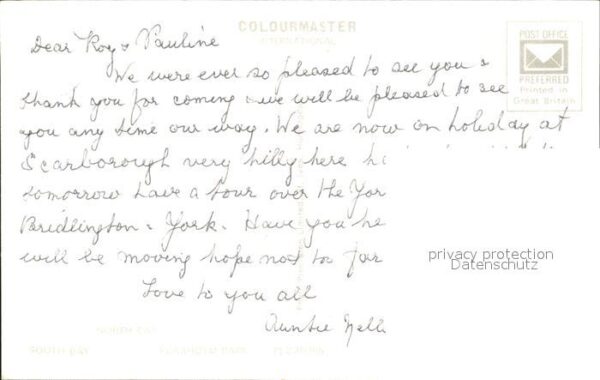 COLOURMASTER
INTERNATIONAL
POST OFFICE
PREFERRED
Printed in
Great Britain
Dear Roy & Pauline
We were ever so pleased to see you &
thank you for coming & we will be pleased to see
you any time our way. We are now on holiday at
Scarborough very hilly here
tomorrow have a tour over the Yor
Bridlington & York. Have you he
will be moving hope not too far
Love to you all
Auntie Nell
privacy protection
Datenschutz
NORTH BAY
SOUTH BAY
PEASHOLM PARK